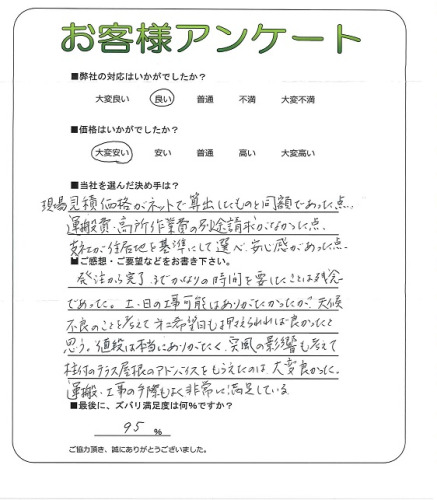 お客様アンケート
■弊社の対応はいかがでしたか？
大変良い 良い 普通 不満 大変不満
■価格はいかがでしたか？
大変安い 安い 普通 高い 大変高い
■当社を選んだ決め手は？
現場見積価格がネットで算出したものと同額であった点.
運搬費・高所作業費の別途請求がなかった点.
支社が住居地を基準にして選べ、安心感があった点.
■ご感想・ご要望などをお書き下さい。
発注から完了までかなりの時間を要したことは残念
であった。土・日の工事可能はありがたかったが、天候
不良のことを考えて第二希望日も押えられれば良かったと
思う。値段は本当にありがたく、突風の影響も考えて
柱付のテラス屋根のアドバイスをもらえたのは、大変良かった。
運搬・工事の手際もよく非常に満足している.
■最後に、ズバリ満足度は何%ですか？
95 %
ご協力頂き、誠にありがとうございました。